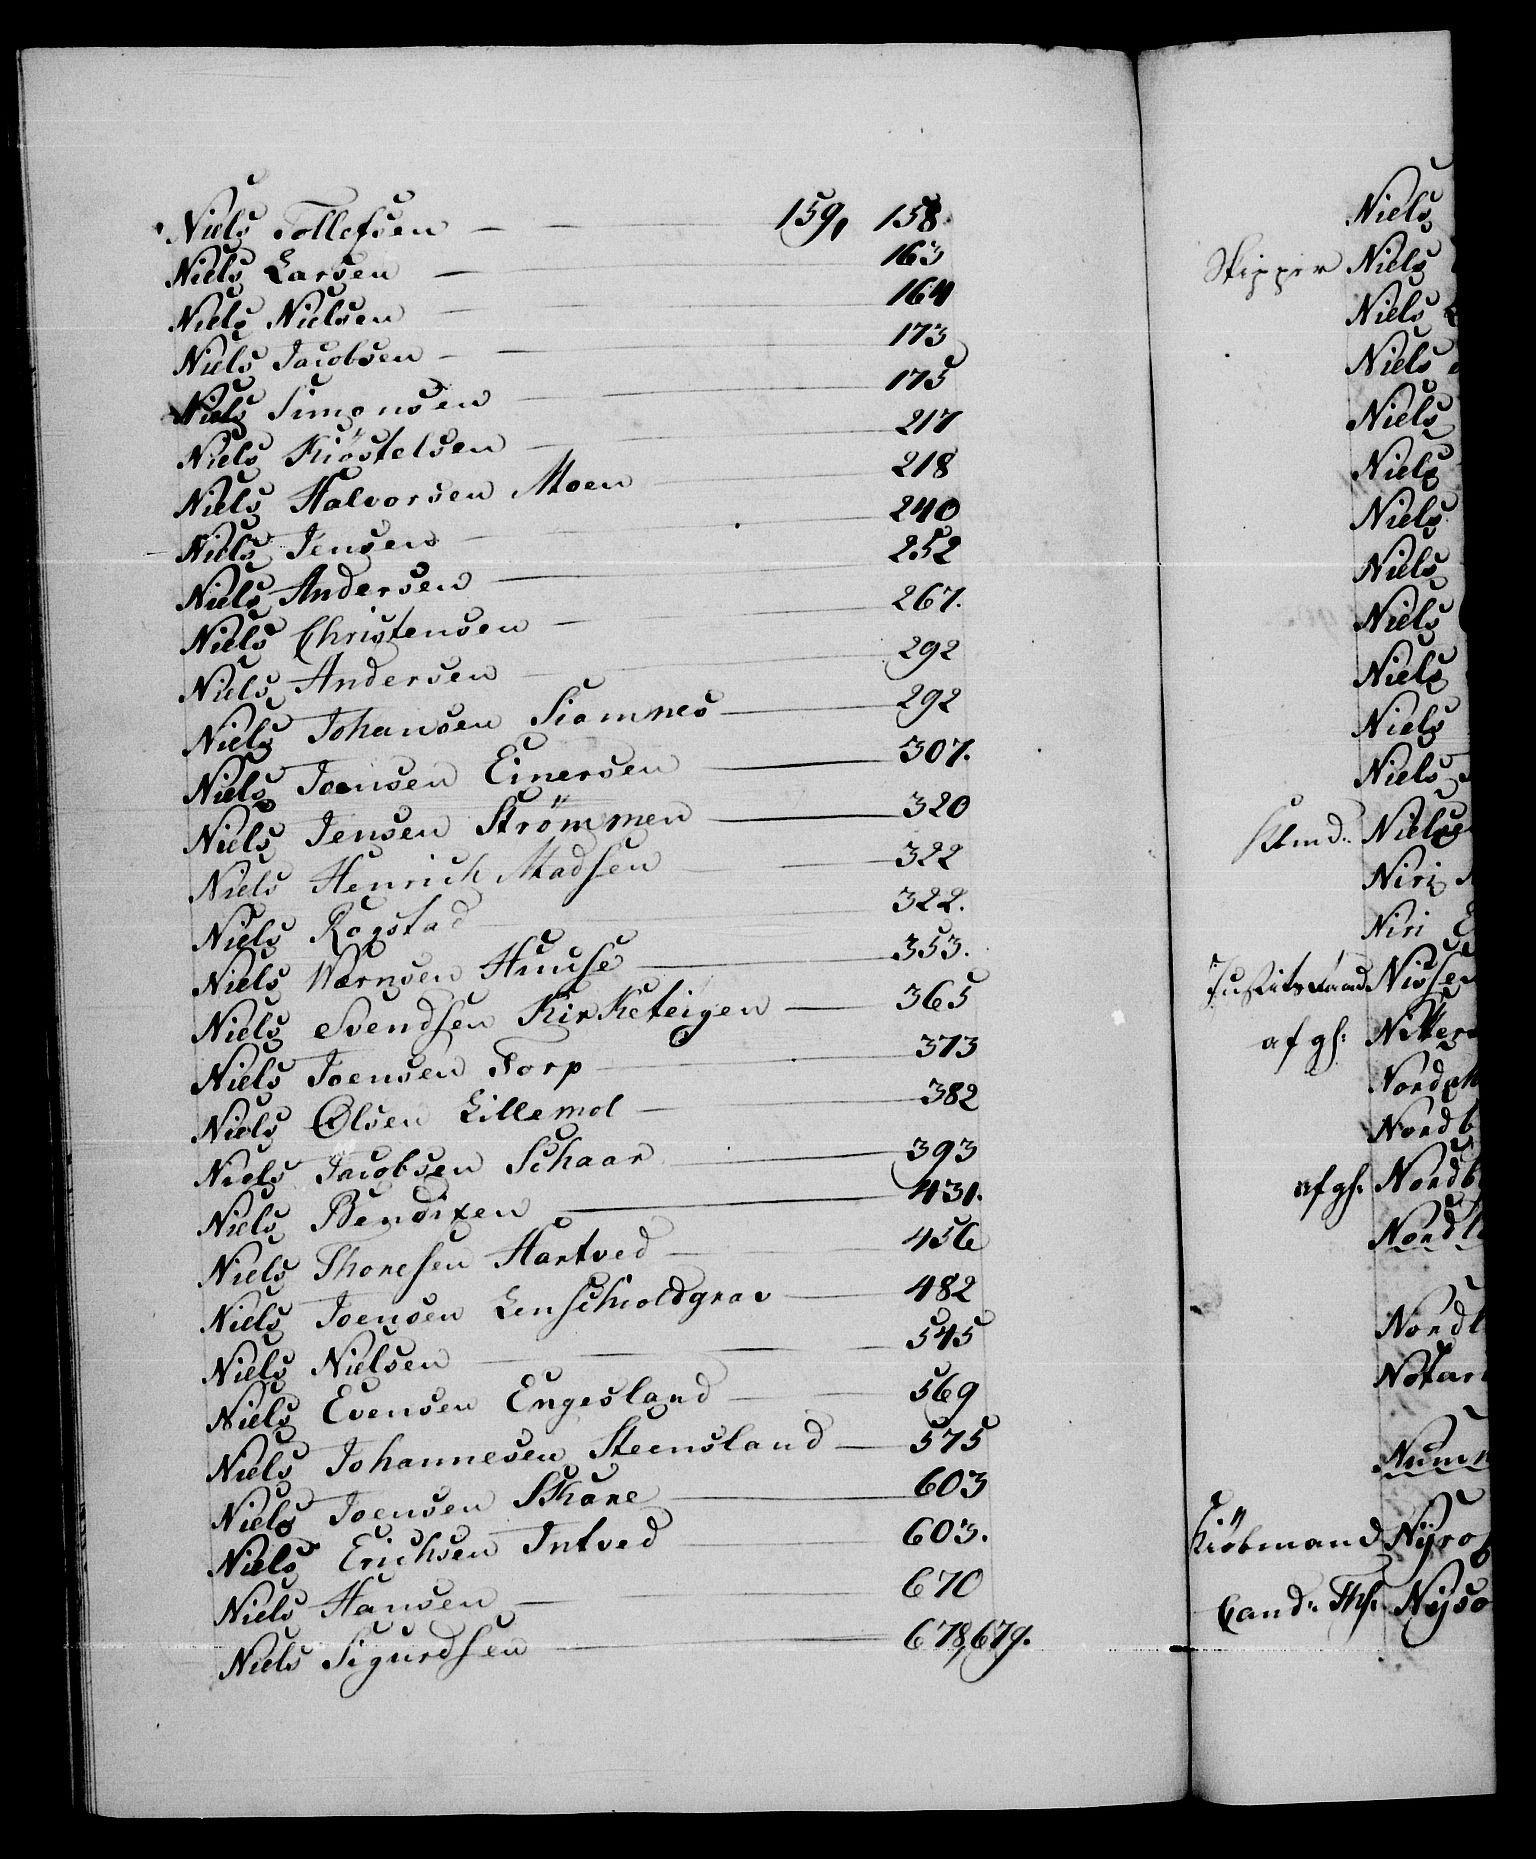 Niels Tollefsen — 159, 158.
Niels Larsen — 163
Niels Nielsen — 164
Niels Jacobsen — 173
Niels Simonsen — 175
Niels Kiöstelsen — 217
Niels Halvorsen Moen 218
Niels Jensen — 240
Niels Andersen — 252
Niels Christensen — 267.
Niels Andersen — 292
Niels Johansen Siamnes — 292
Niels Joensen Einersen — 307.
Niels Jensen Strömmen — 320
Niels Henrich Madsen — 322
Niels Rogstad — 322.
Niels Wærnsen Huuse — 353.
Niels Svendsen Kirketeigen — 365
Niels Joensen Torp — 373
Niels Olsen Lillemol — 382
Niels Jacobsen Schaar — 393
Niels Bendixen — 431.
Niels Thoresen Hartved — 456
Niels Joensen Lenschioldgrav — 482
Niels Nielsen — 545
Niels Evensen Engesland — 569
Niels Johannesen Steensland — 575
Niels Joensen Skare — 603
Niels Erichsen Intved — 603.
Niels Hansen — 670
Niels Sigurdsen — 678, 679.
Niels
Skipper Niels
Niels
Niels
Niels
Niels
Niels
Niels
Niels
Niels
Niels
Niels
Kbmd: Niels
Niri
Niri
Justitsraad Nisse
afgs: Nitter
Nord
Nordb
afgs: Nordb
Nordl
Nordl
Notar
Num
Kiöbmand Nÿro
Cand: Nÿso